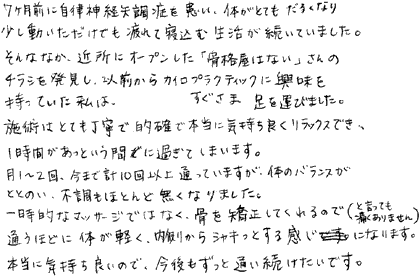 7ヶ月前に自律神経失調症を患い、体がとてもだるくなり
少し動いただけでも疲れて寝込む生活が続いていました。
そんななか、近所にオープンした「骨格屋はない」さんの
チラシを発見し、以前からカイロプラクティックに興味を
持っていた私は、すぐさま足を運びました。
施術はとても丁寧で的確で本当に気持ち良くリラックスでき、
1時間があっという間に過ぎてしまいます。
月1〜2回、今まで計10回以上通っていますが、体のバランスが
ととのい、不調もほとんど無くなりました。
一時的なマッサージではなく、骨を矯正してくれるので(と言っても痛くありません)
通うほどに体が軽く、内側からシャキッとする感じになります。
本当に気持ち良いので、今後もずっと通い続けたいです。